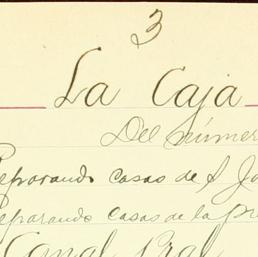 3
La Caja
Del Númer
Reparando casas de S Jo
Reparando casas de la pr
Canal Pral